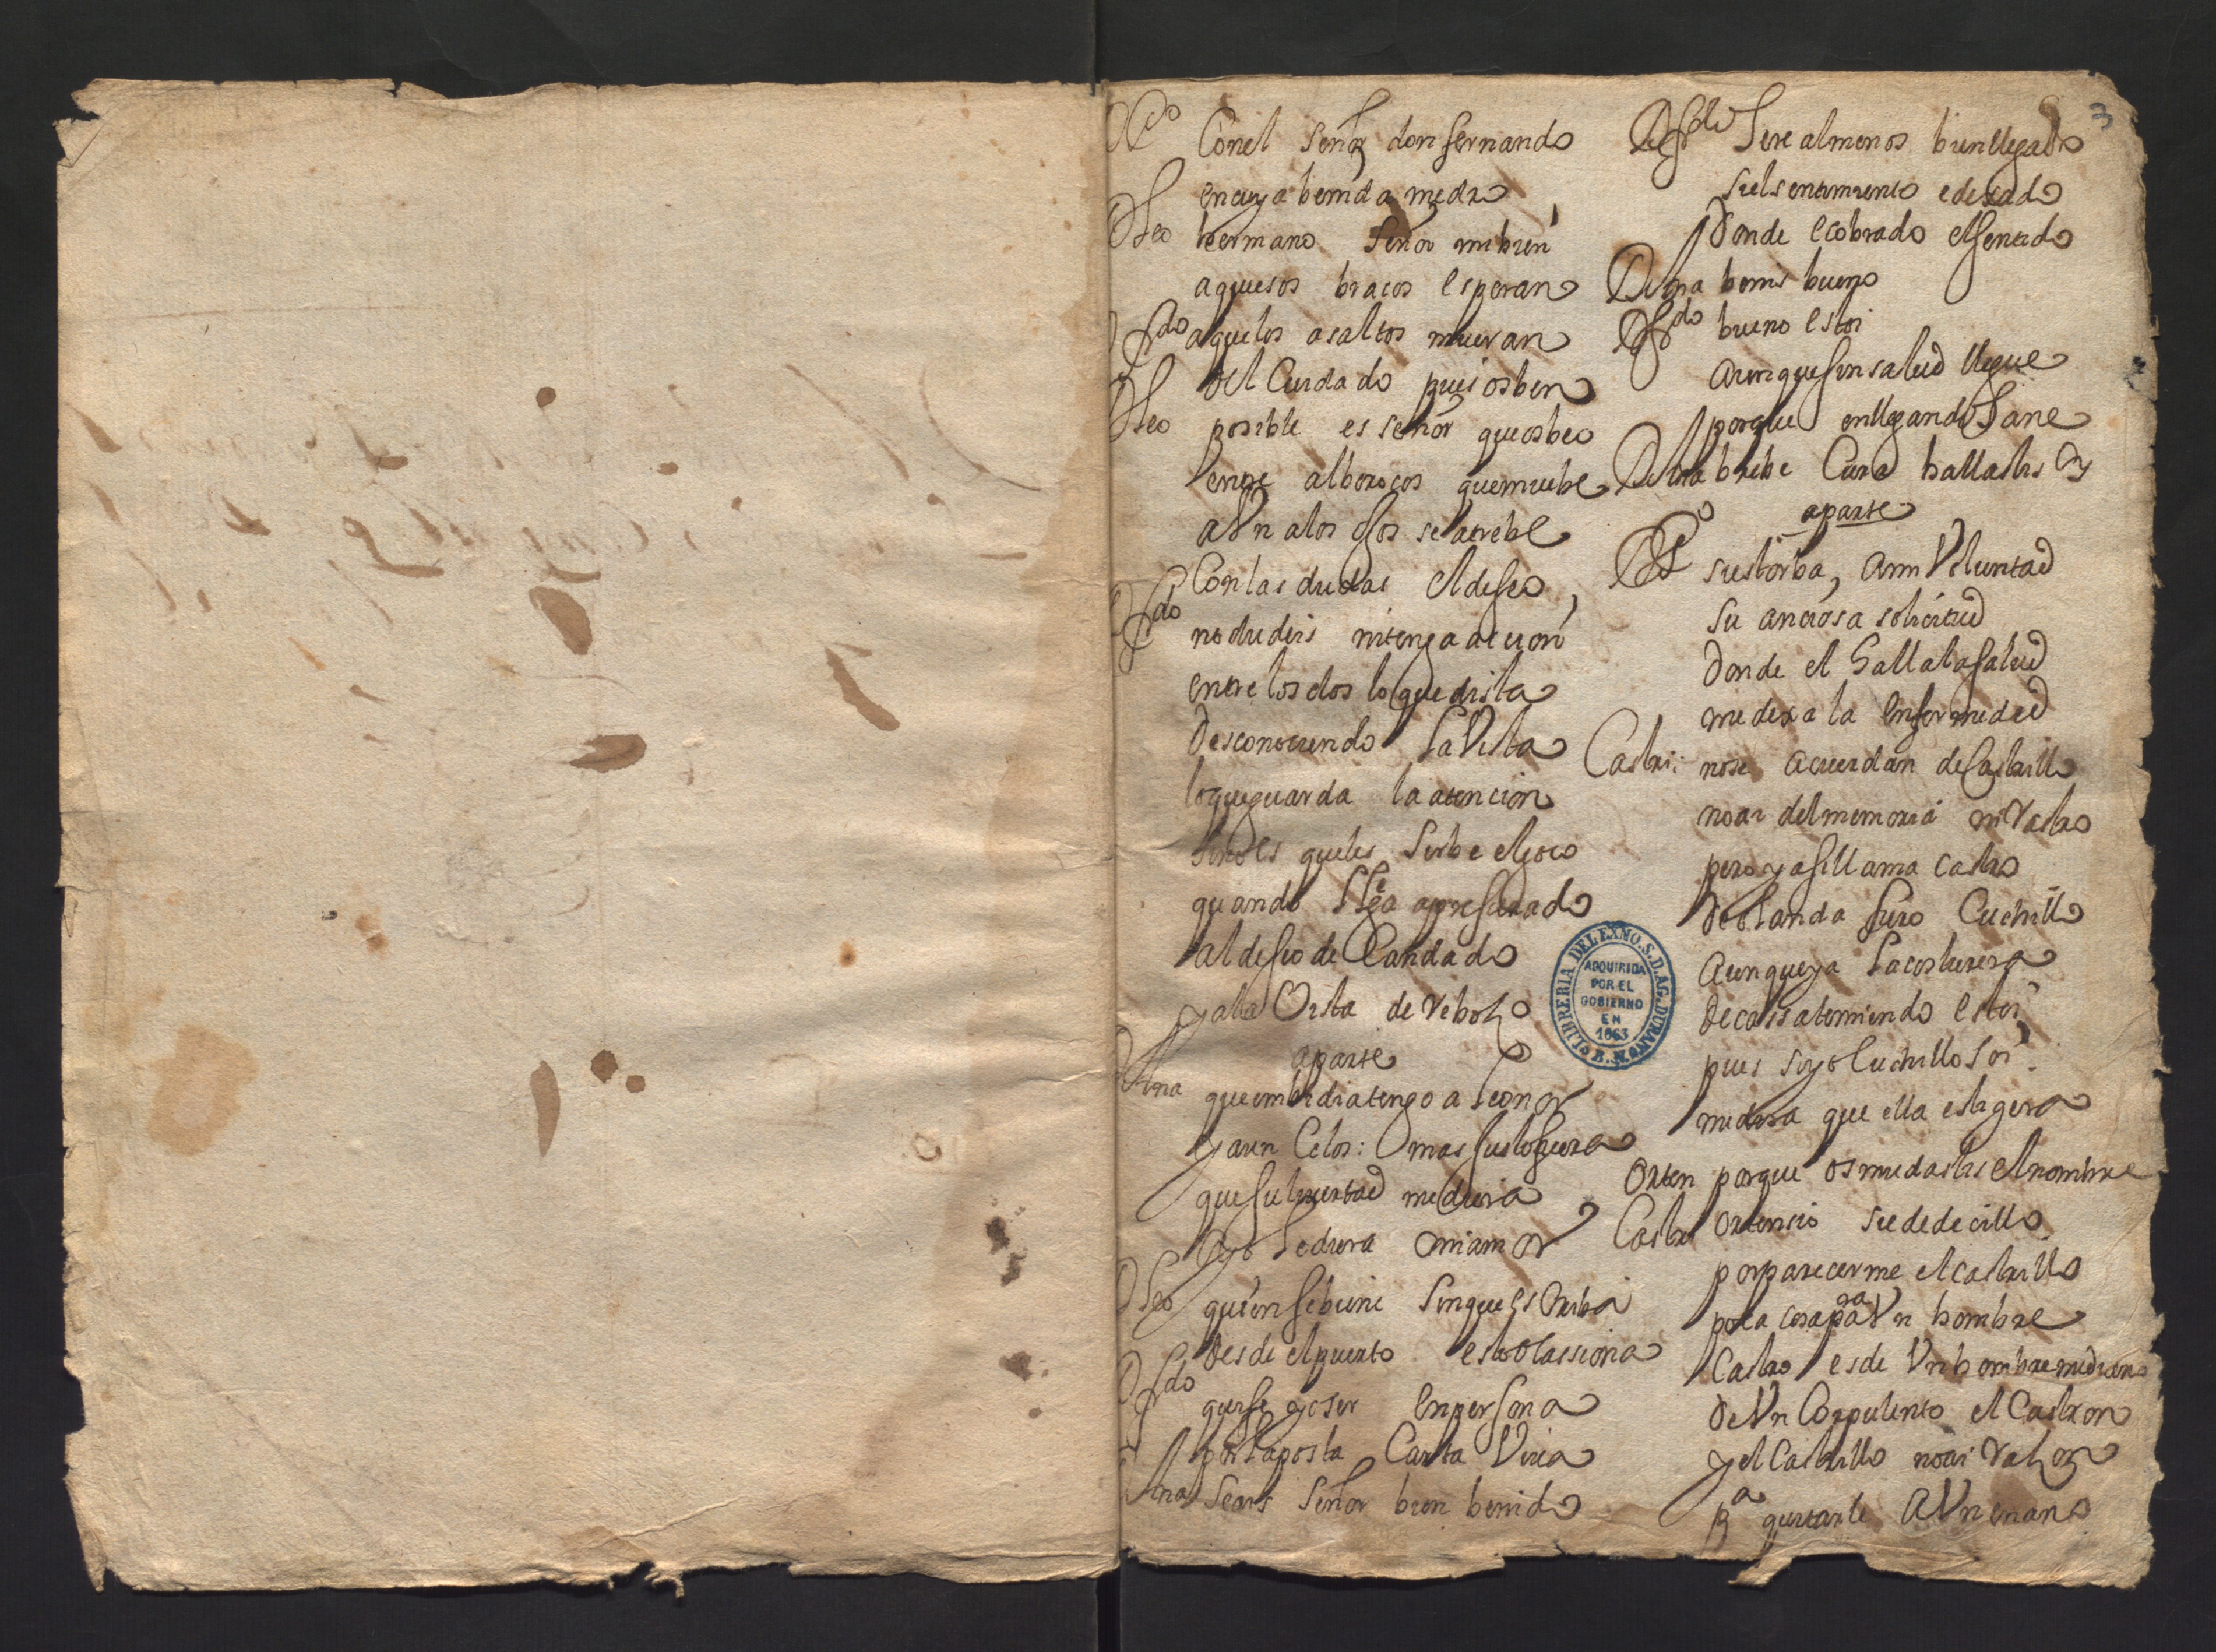 3
Conel señor don fernando
en cuya benida medra
Dleo hermano señor mi bien
aquesos bracos esperan
Dfdo aquelos asaltos mueran
del Cuidado pues os ben
Dleo posible es señor que os beo
entre alborocos que muebe
aVn alos ojos se atrebe
Con las dudas el deseo
Dfdo no dudeis ni tenga acion
entre los dos lo que dista
desconociendo la Vista
lo que guarda la atencion
sino es que les sirbe el goco
quando llega apresurado
al deseo de Candado
y ala Vista de reboco
aparte
Dana que embidia tengo a leonor
y aun Celos: mas justo fuera
que su libertad me diera
yo le diera mi amor
Dleo quien se biene sin que escriba
desde el puerto es ocassiona
Dfdo quise yo ser en persona
por la posta Carta Viua
Dana seais señor bien benido
Dfdo sere al menos bien llegado
si el sentimiento e dexado
donde e cobrado el sentido
Dana benis bueno
Dfdo bueno estoi
aunque sin salud llegue
porque en llegando sane
Dana brebe Cura hallastis
aparte
su estorba, a mi Voluntad
su anciosa solicitud
donde el halla la salud
me dexa la enfermedad
Castri: no se acuerdan de Castrillo
no ai del memoria ni rastro
pero ya se llama Castro
de olanda fino Cuchillo
aunque ya la costurera
de cassa temiendo estoi
pues si yo Cuchillo soi
me dira que ella es tigera
Orten porque os mudastis el nombre
Castri ortensio su dedecillo
por parecerme el castrillo
poca cosa para Vn hombre
Castro es de Vn hombre mediano
de Vn Corpulento el Castron
y el Castrillo no ai razon
pa quitarle a Vn enano
LIBRERIA DEL EXMO. S. D. AG. DURAN
ADQUIRIDA
POR EL
GOBIERNO
EN
1863
B. N.